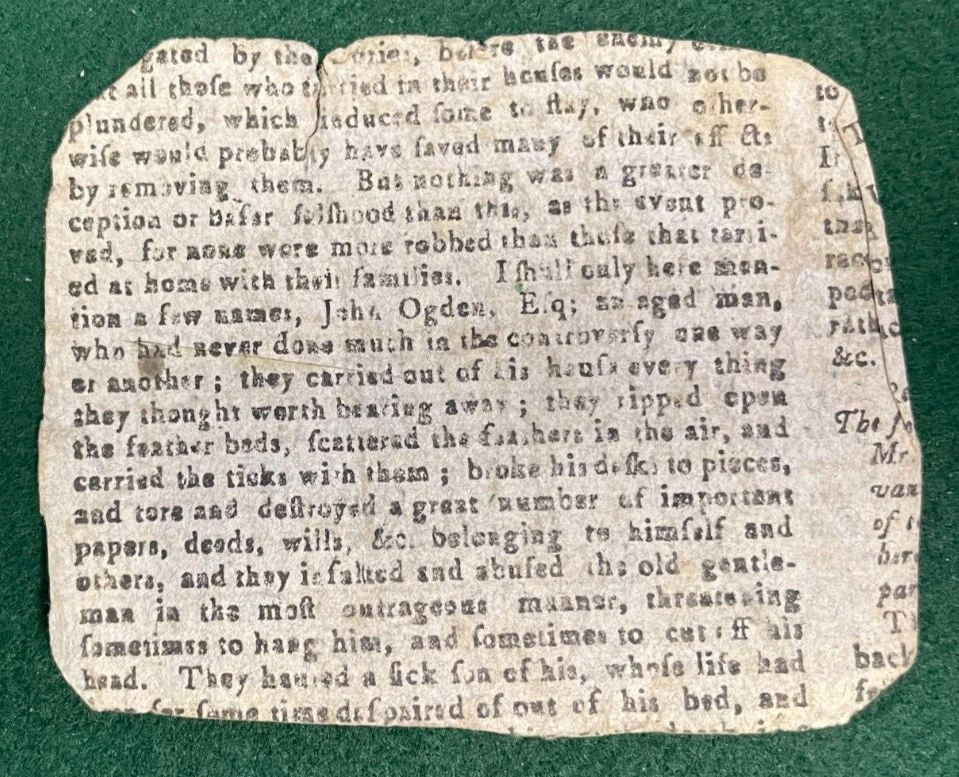 gated by the ories, before the enemy
all those who tarried in their houſes would not be
plundered, which induced ſome to ſtay, who other-
wiſe would probably have ſaved many of their effects
by removing them. But nothing was a greater de-
ception or baſer falſhood than this, as the event pro-
ved, for none were more robbed than thoſe that tarri-
ed at home with their families. I ſhall only here men-
tion a few names, John Ogden, Eſq; an aged man,
who had never done much in the controverſy one way
or another; they carried out of his houſe every thing
they thought worth bearing away; they ripped open
the feather beds, ſcattered the feathers in the air, and
carried the ticks with them; broke his deſks to pieces,
and tore and deſtroyed a great number of important
papers, deeds, wills, &c. belonging to himſelf and
others, and they inſulted and abuſed the old gentle-
man in the moſt outrageous manner, threatening
ſometimes to hang him, and ſometimes to cut off his
head. They hauled a ſick ſon of his, whoſe life had
for ſome time deſpaired of out of his bed, and
to
&c.
The
Mr
of
par
back